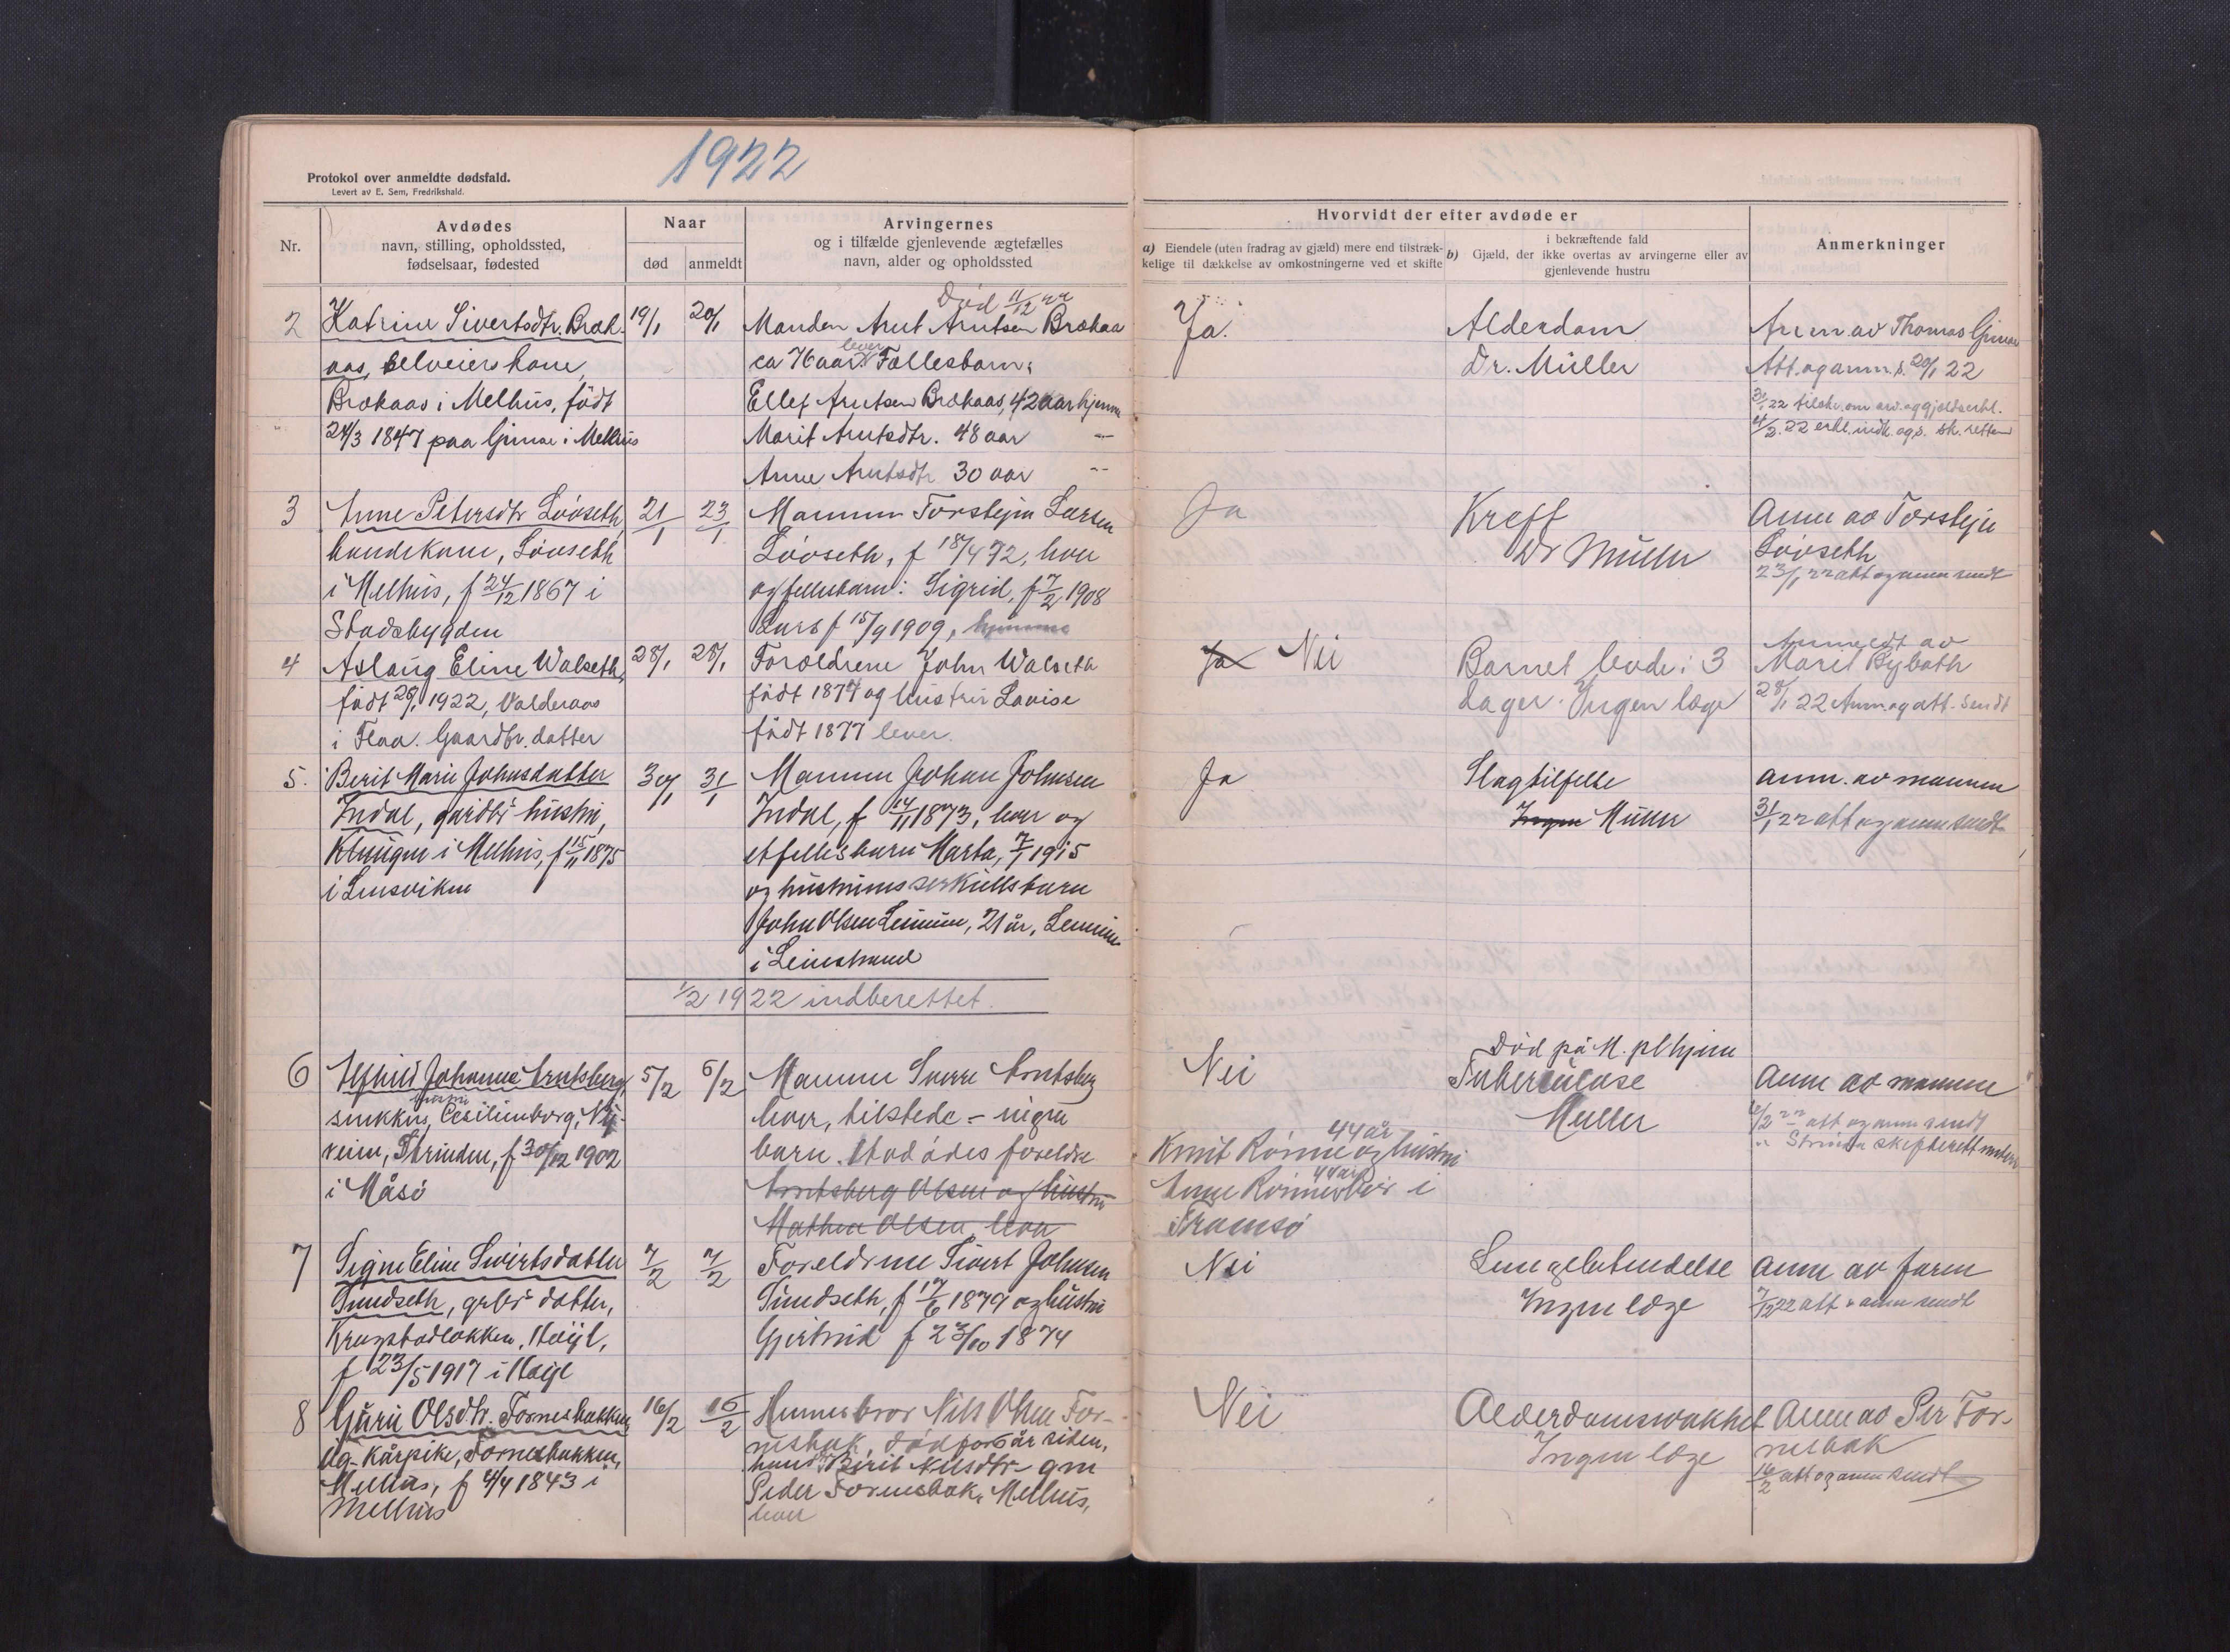 1922
Protokol over anmeldte dødsfald.
Levert av E. Sem, Fredrikshald.
Nr.
Avdødes
navn, stilling, opholdssted,
fødselsaar, fødested
Naar
død
anmeldt
Arvingernes
og i tilfælde gjenlevende ægtefælles
navn, alder og opholdssted
Hvorvidt der efter avdøde er
a) Eiendele (uten fradrag av gjæld) mere end tilstræk-
kelige til dækkelse av omkostningerne ved et skifte
i bekræftende fald
b) Gjæld, der ikke overtas av arvingerne eller av
gjenlevende hustru
Anmerkninger
2
Katrine Sivertsdtr. Bræk-
aas, selveierskone,
Brækaas i Melhus, født
24/3 1847 paa Gimse i Melhus
19/1
20/1
Død 11/12 22
Manden Arnt Arntsen Brækaas
ca 76 aar lever Fællesbarn:
Ellef Arntsen Brækaas, 42 aar hjemme
Marit Arntsdtr. 48 aar -"-
Anne Arntsdtr 30 aar -"-
Ja.
Alderdom
Dr. Müller
Anm. av Thomas Gimse
Att. og anm. s. 20/1 22
31/1 22 tilskr. om arv. og gjældserkl.
4/2 22 erkl. indk. og s. sk. retten
3
Anne Petersdtr Løvseth,
Løvseth
i Melhus, f 24/12 1867 i
Stadsbygden
21/1
23/1
Mannen Torstejn Larsen
Løvseth, f 18/4 72, lever
og fellesbarn: Sigrid, f 7/2 1908
Lars f 15/9 1909, hjemme
Ja
Kreft
Dr Müller
Anm av Torstejn
Løvseth
23/1 22 att og anm sendt
4
Aslaug Eline Walseth,
født 25/1 1922, Valderaas
i Flaa. Gaardbr. datter
28/1
28/1
Forældrene John Walseth
født 1874 og hustru Lovise
født 1877 lever.
Ja Nei
Barnet levde i 3
dager. Ingen læge
Anmeldt av
Marit Bybøth
28/1 22 Anm. og att. sendt
5.
Berit Marie Johnsdatter
Indal, gårdbr hustru,
i Melhus, f 15/11 1875
i Lensviken
30/1
31/1
Mannen Johan Johnsen
Indal, f 14/11 1873, lever og
et fellesbarn Marta, 7/1 1915
og hustruens serkullsbarn
John Olsen 21 år,
i Leinstrand
Ja
Slagtilfelle
Ingen Müller
anm. av mannen
31/1 22 att og anm sendt
1/2 1922 indberettet.
6
Johanne Arntsberg,
hustru
Cesilienborg, Ny-
veien, Strinden, f 30/12 1902
i Måsø
5/2
6/2
Mannen Sverre Arntsberg
lever, tilstede - ingen
barn. Avdødes foreldre
Arntsberg Olsen og hustru
Mathea Olsen lever
Nei
Knut Rønne og hustru 44 år
Anne Rønne 44 år bor i
Tromsø
Død på M. plhjem
Tuberkulose
Muller
Anm av mannen
6/2 22 att og anm sendt
Strinda skifterett
7
Signe Eline Sivertsdatter
Sundseth, grbr datter,
Krogstadløkken, Hølje,
f 23/5 1917 i Hølje
7/2
7/2
Foreldrene Sivert Johnsen
Sundseth, f 17/6 1879 og hustru
Gjertrud f 23/10 1874
Nei
Lungebetendelse
Ingen læge
Anm av faren
7/2 22 att & anm sendt
8
Guru Olsdtr. Fornesbakken
Ug. kårpike, Fornesbakken,
Melhus, f 4/4 1843 i
Melhus
16/2
16/2
Hennes bror Nils Olsen For-
nesbak, død for år siden,
hans Berit Nilsdtr gm
Peder Fornesbak, Melhus,
lever
Nei
Alderdomssvakhet
Ingen læge
Anm av Per For-
nesbak
16/2 att og anm sendt